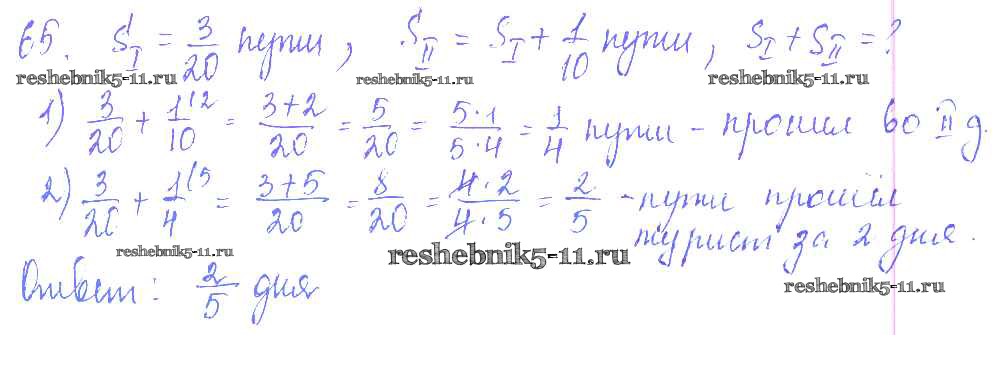 65. S_I = 3/20 пути, S_II = S_I + 1/10 пути, S_I + S_II = ?
reshebnik5-11.ru reshebnik5-11.ru reshebnik5-11.ru
1) 3/20 + 1/10 (2 = (3+2)/20 = 5/20 = (5·1)/(5·4) = 1/4 пути - прошёл во II д.
2) 3/20 + 1/4 (5 = (3+5)/20 = 8/20 = (4·2)/(4·5) = 2/5 - пути прошёл
турист за 2 дня.
reshebnik5-11.ru reshebnik5-11.ru
Ответ: 2/5 дня
reshebnik5-11.ru